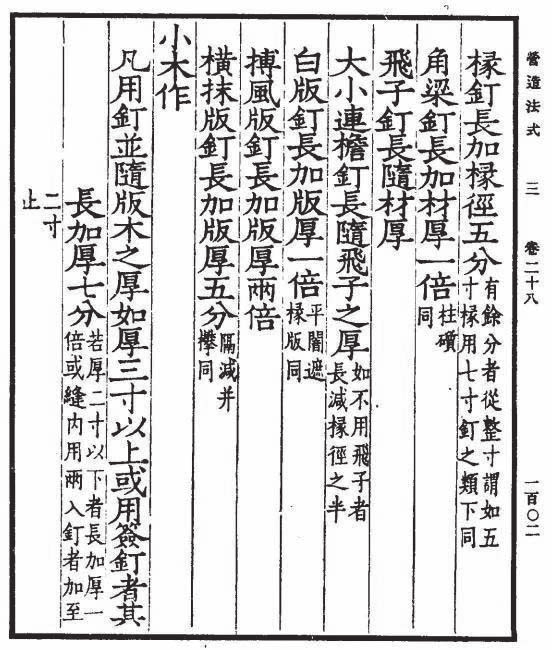 營造法式 三 卷二十八 一百〇二
椽釘長加椽徑五分有餘分者從整寸謂如五寸椽用七寸釘之類下同
角梁釘長加材厚一倍柱礩同
飛子釘長隨材厚
大小連檐釘長隨飛子之厚如不用飛子者長減椽徑之半
白版釘長加版厚一倍平闇遮椽版同
搏風版釘長加版厚兩倍
橫抹版釘長加版厚五分隔減并襻同
小木作
凡用釘並隨版木之厚如厚三寸以上或用簽釘者其
長加厚七分若厚二寸以下者長加厚一倍或縫内用兩入釘者加至
二寸止